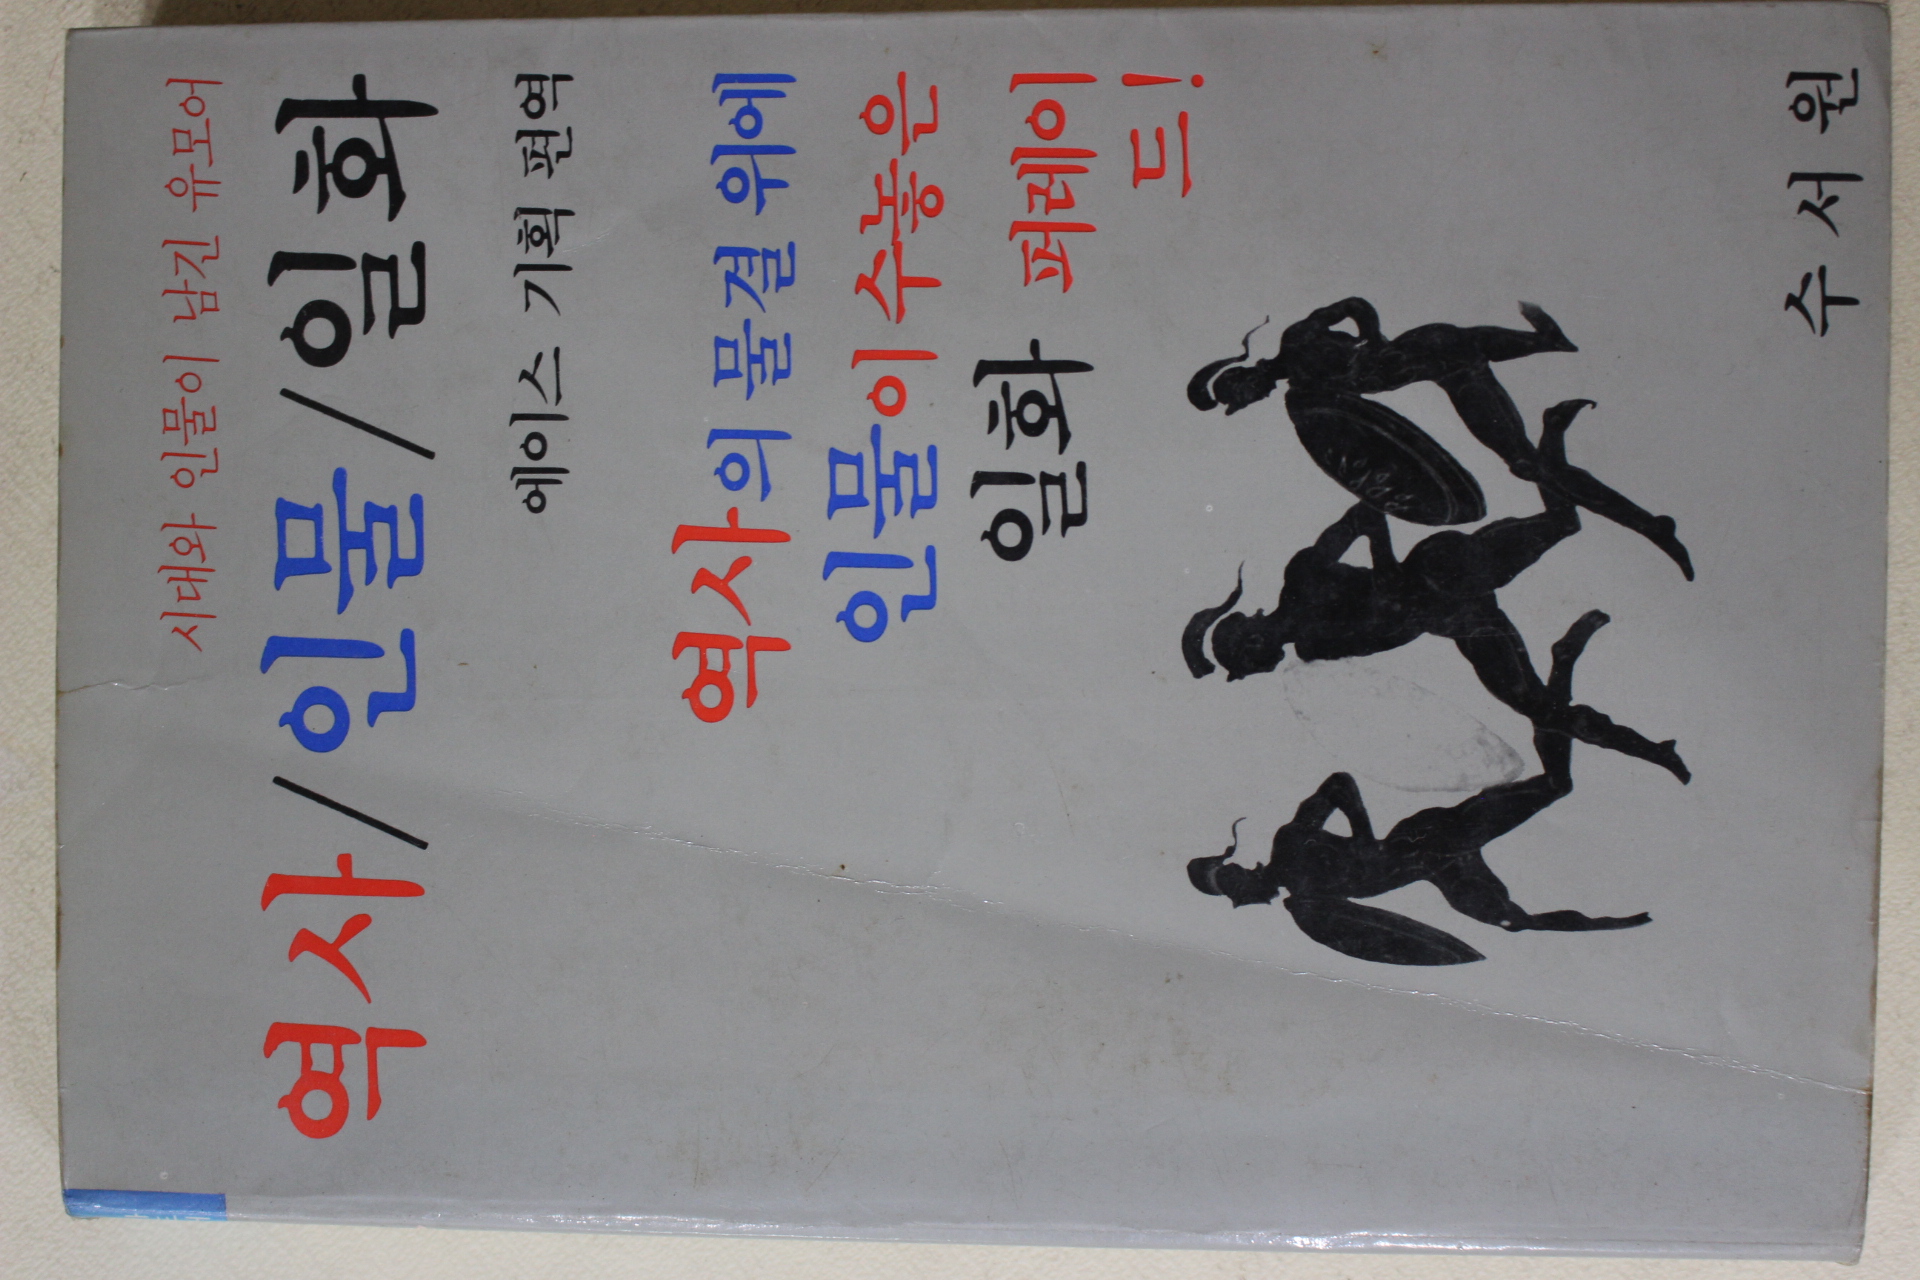 시대와 인물이 남긴 유모어
역사/인물/일화
에이스 기획 편역
역사의 물결 위에
인물이 수놓은
일화 퍼레이
드!
수서원